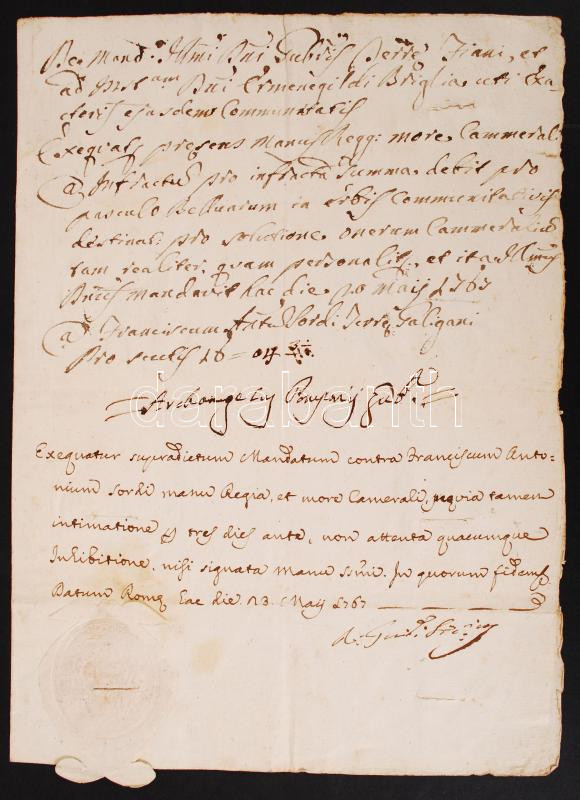 De Mand.to Illmi Dni Gubris Terræ Fiani, et
ad Inst.am Dni Ermenegildi Briglia uti Exa-
ctoris ejusdem Communitatis
Exequat.r presens Manu Regg: more Cammerali
Infractus pro infracta Summa debit pro
pasculo Belluarum in Erbis Communitativis
destinat: pro solutione onerum Cammeraliu
tam realiter quam personalit, et ita Illmus
Dnus mandavit hac die 20 Maij 1767
Franciscum Antu Sordi Terræ Saligani
Pro scutis 18 = 04
darabanth
Exequatur supradictum Mandatum contra Franciscum Anto-
nium Sordi manu Regia, et more Camerali, prævia tamen
intimatione p tres dies ante, non attenta quacumque
Inhibitione, nisi signata manu SSmi. In quorum fidem
Datum Romæ hac die 23 Maij 1767